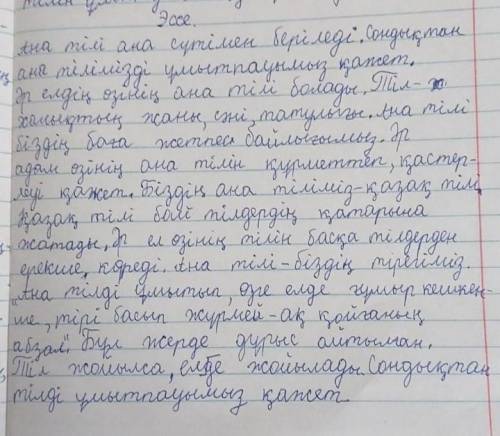 тілін ұмыт
Эссе.
Ана тілі ана сүтімен беріледі. Сондықтан
ана тілімізді ұмытпауымыз қажет.
Әр елдің өзінің ана тілі болады. Тіл-
халықтың жаны, сәні, татулығы. Ана тілі
біздің баға жетпес байлығымыз. Әр
адам өзінің ана тілін құрметтеп, қастер-
леуі қажет. Біздің ана тіліміз-қазақ тілі.
Қазақ тілі бай тілдердің қатарына
жатады. Әр ел өзінің тілін басқа тілдерден
ерекше, көреді. Ана тілі-біздің тірегіміз.
"Ана тілді ұмытып, өзге елде ғұмыр кешкен-
ше, тірі басып жүрмей-ақ қойғаның
абзал". Бұл жерде дұрыс айтылған.
Тіл жойылса, елде жойылады. Сондықтан
тілді ұмытпауымыз қажет.